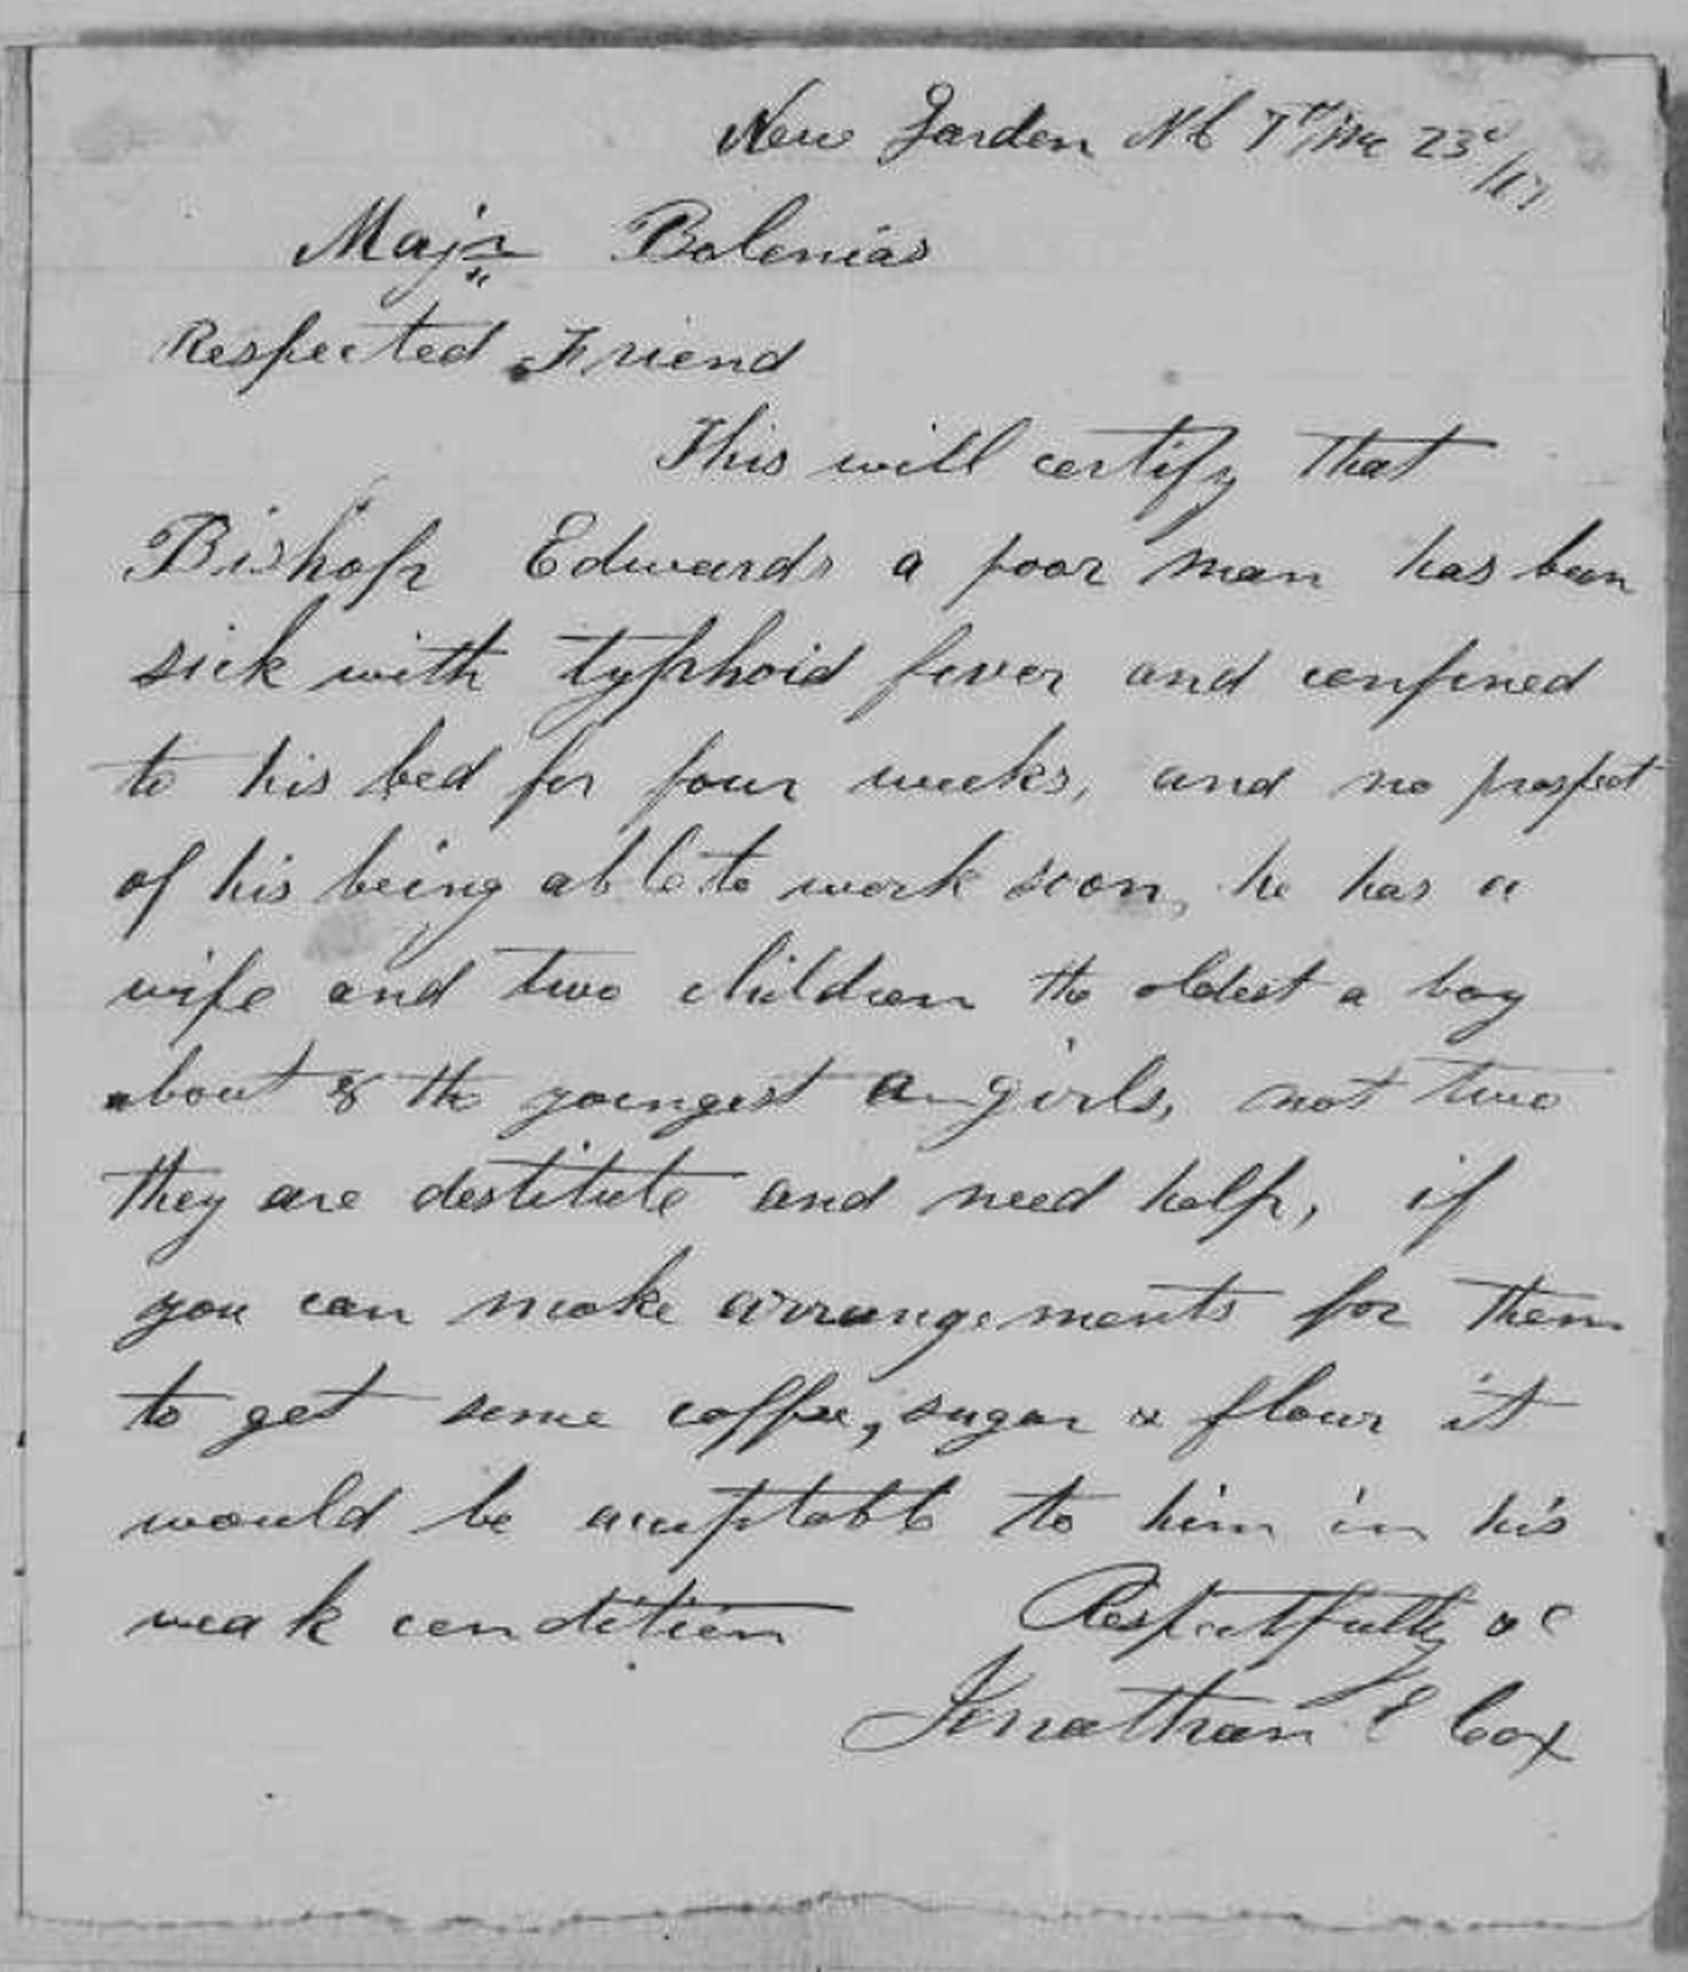 New Garden NC 7th/mo 23d/67
Majr Bolenias
Respected Friend
This will certify that
Bishop Edwards a poor man has been
sick with typhoid fever and confined
to his bed for four weeks, and no prospect
of his being able to work soon, he has a
wife and two children the oldest a boy
about 8 the youngest a girls, not two
they are destitute and need help, if
you can make arrangements for them
to get some coffee, sugar & flour it
would be acceptable to him in his
weak condition Respectfully &c
Jonathan E Cox